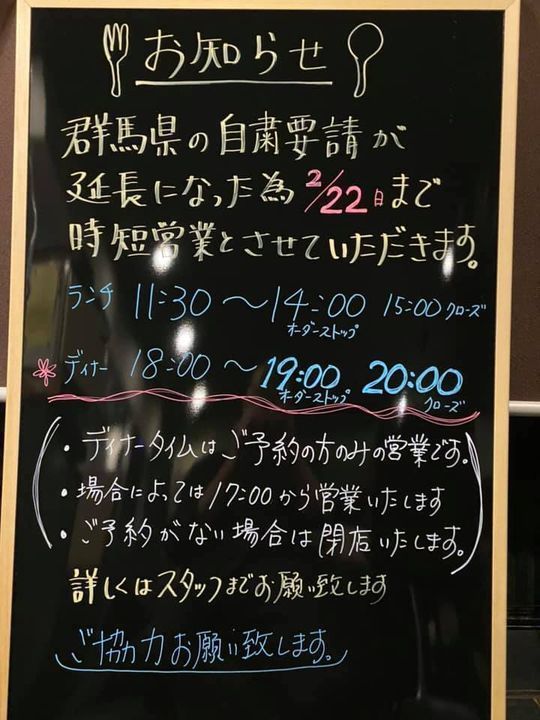 お知らせ
群馬県の自粛要請が
延長になった為2/22日まで
時短営業とさせていただきます。
ランチ 11:30〜14:00 15:00クローズ
オーダーストップ
ディナー 18:00〜19:00 20:00
オーダーストップ クローズ
(・ディナータイムはご予約の方のみの営業です。
・場合によっては17:00から営業いたします
・ご予約がない場合は閉店いたします。)
詳しくはスタッフまでお願い致します
ご協力お願い致します。